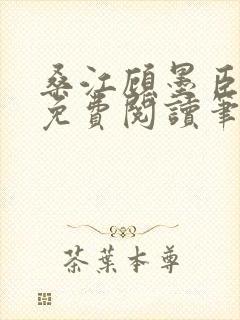 桑江顾墨臣
免費閱讀筆
茶葉本尊